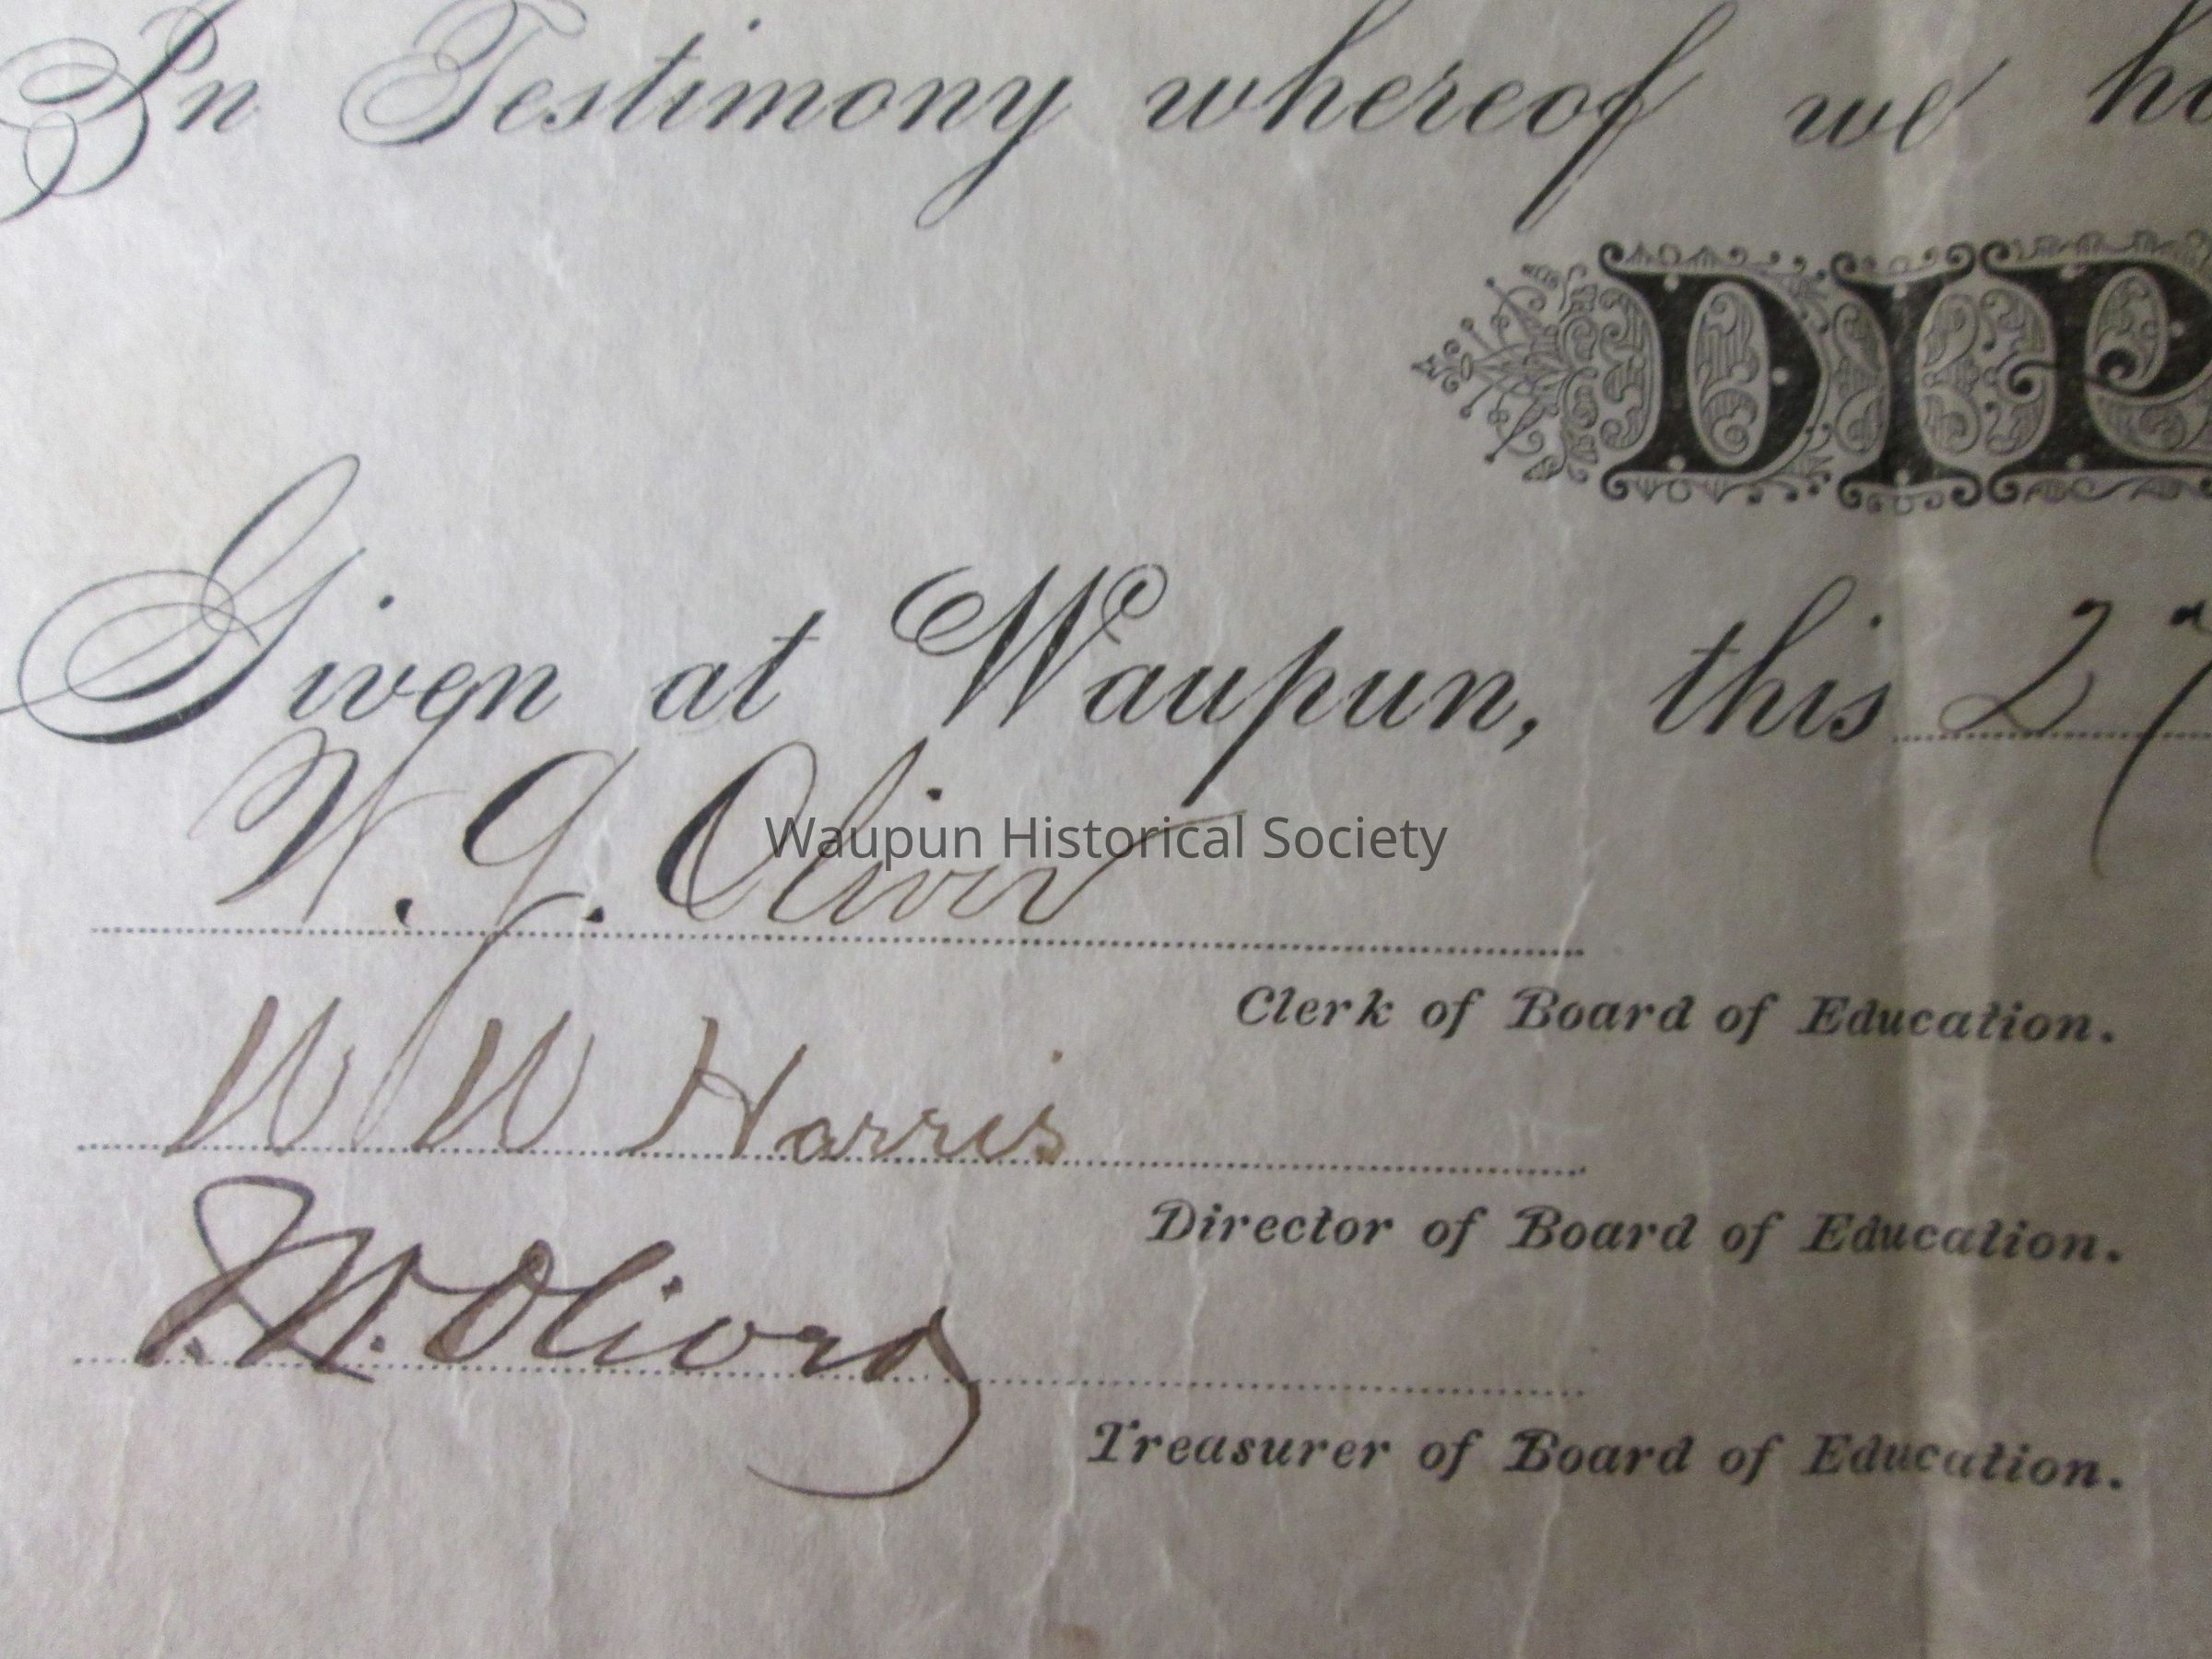 In Testimony whereof we ha
DIP
Given at Waupun, this 27
W. G. Oliver
Waupun Historical Society
Clerk of Board of Education.
W W Harris
Director of Board of Education.
Treasurer of Board of Education.